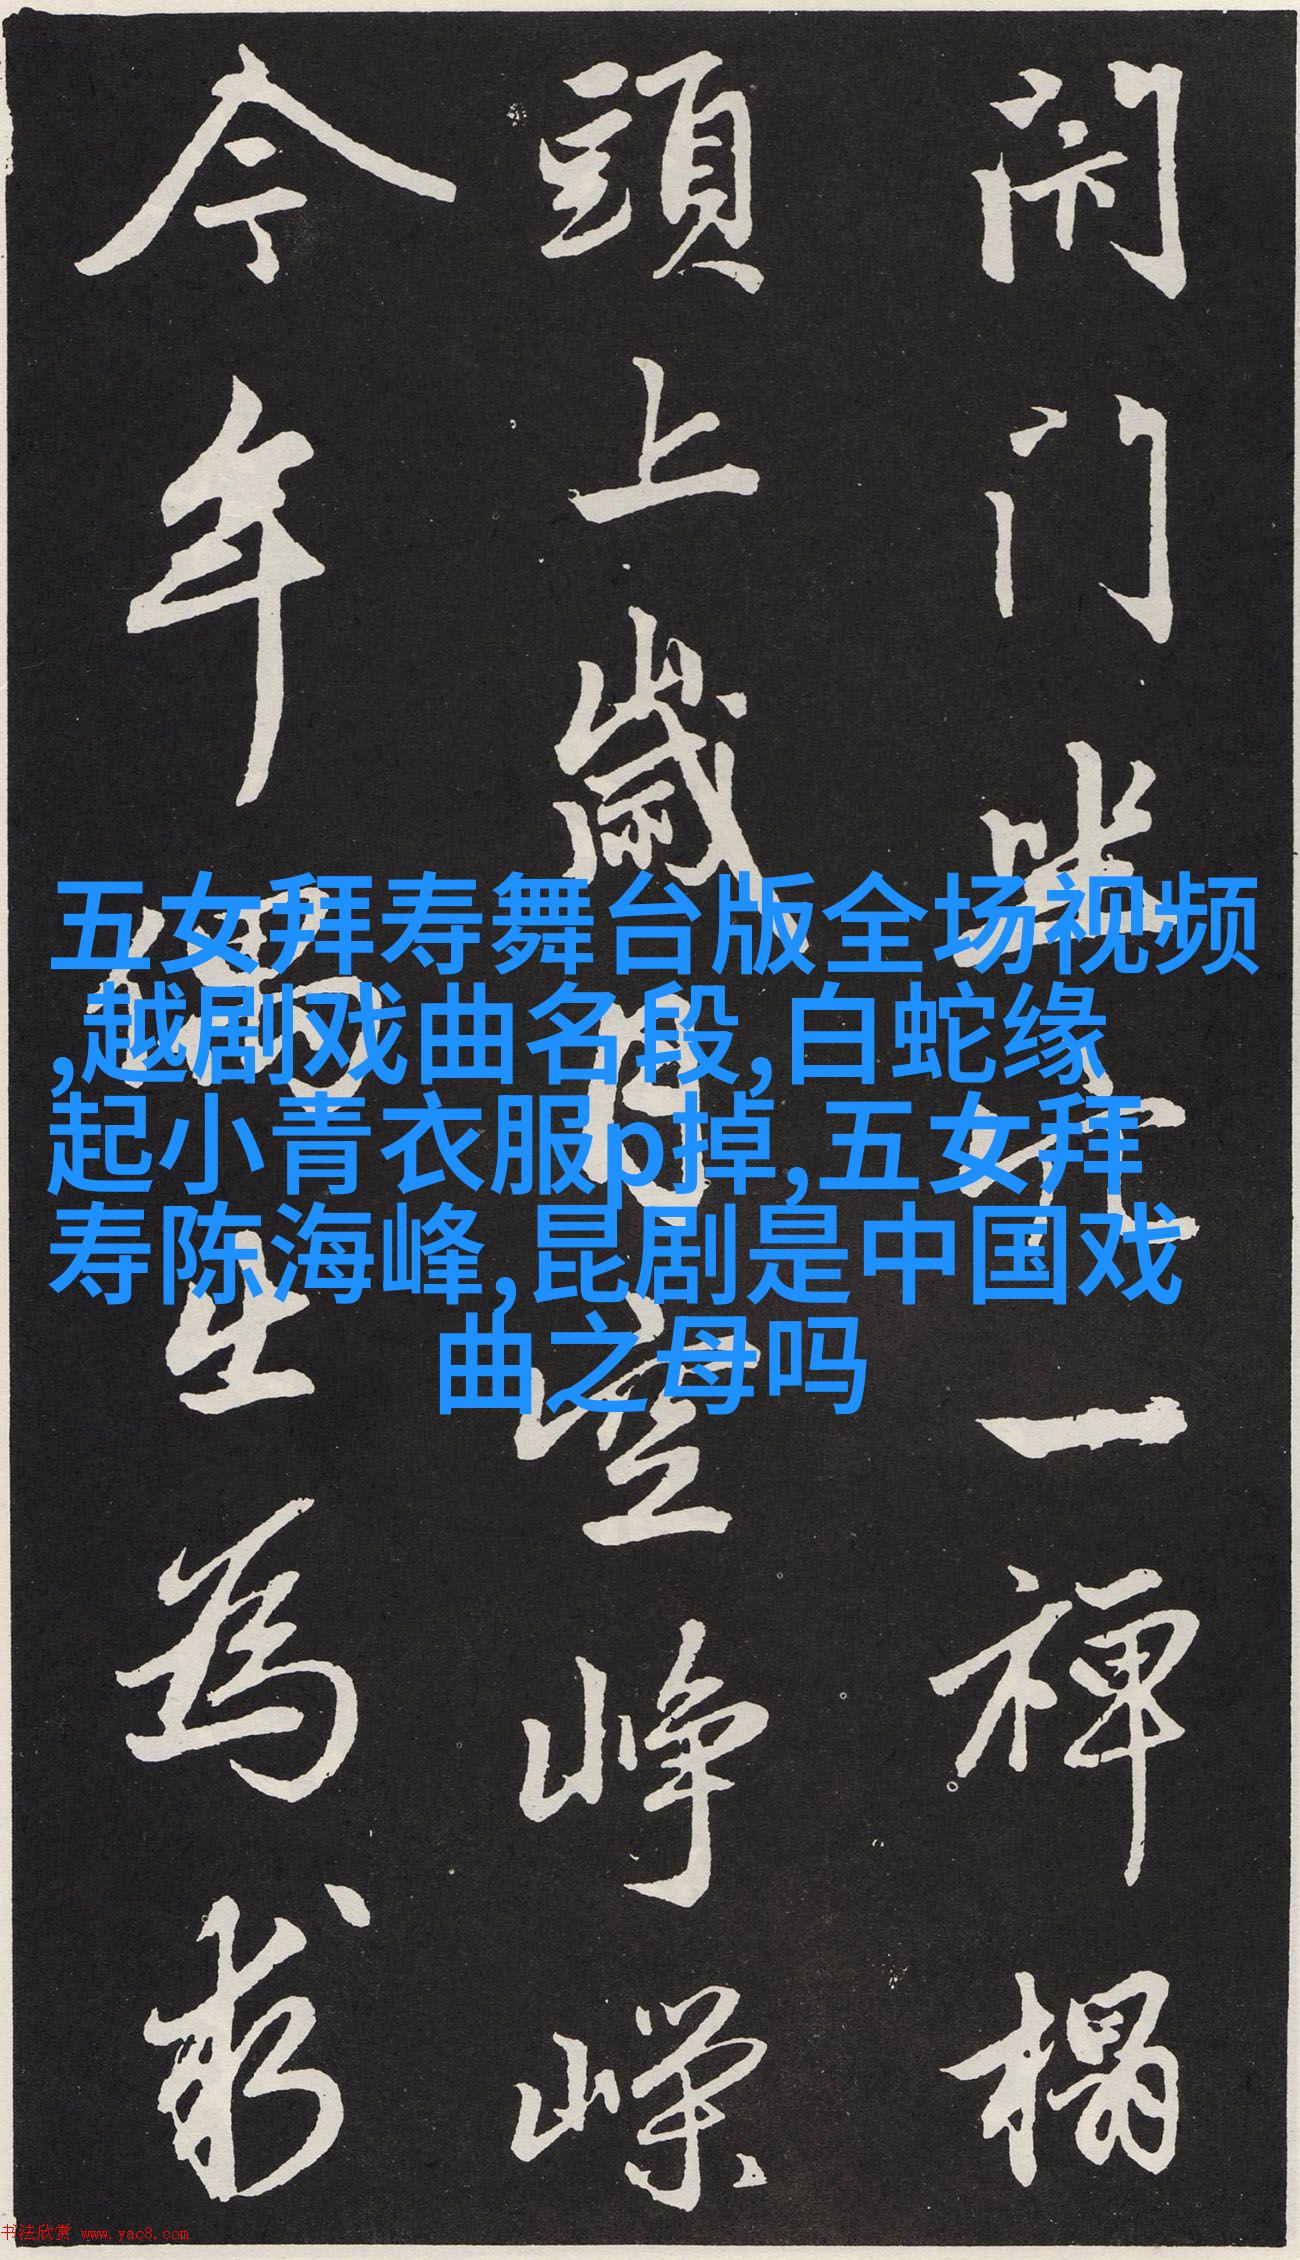 闭门坐穴一禪榻
頭上歲月空峥嶸
今年偶出為求
五女拜寿舞台版全场视频
,越剧戏曲名段,白蛇缘
起小青衣服p掉,五女拜
寿陈海峰,昆剧是中国戏
曲之母吗
书法欣赏 www.yac8.com